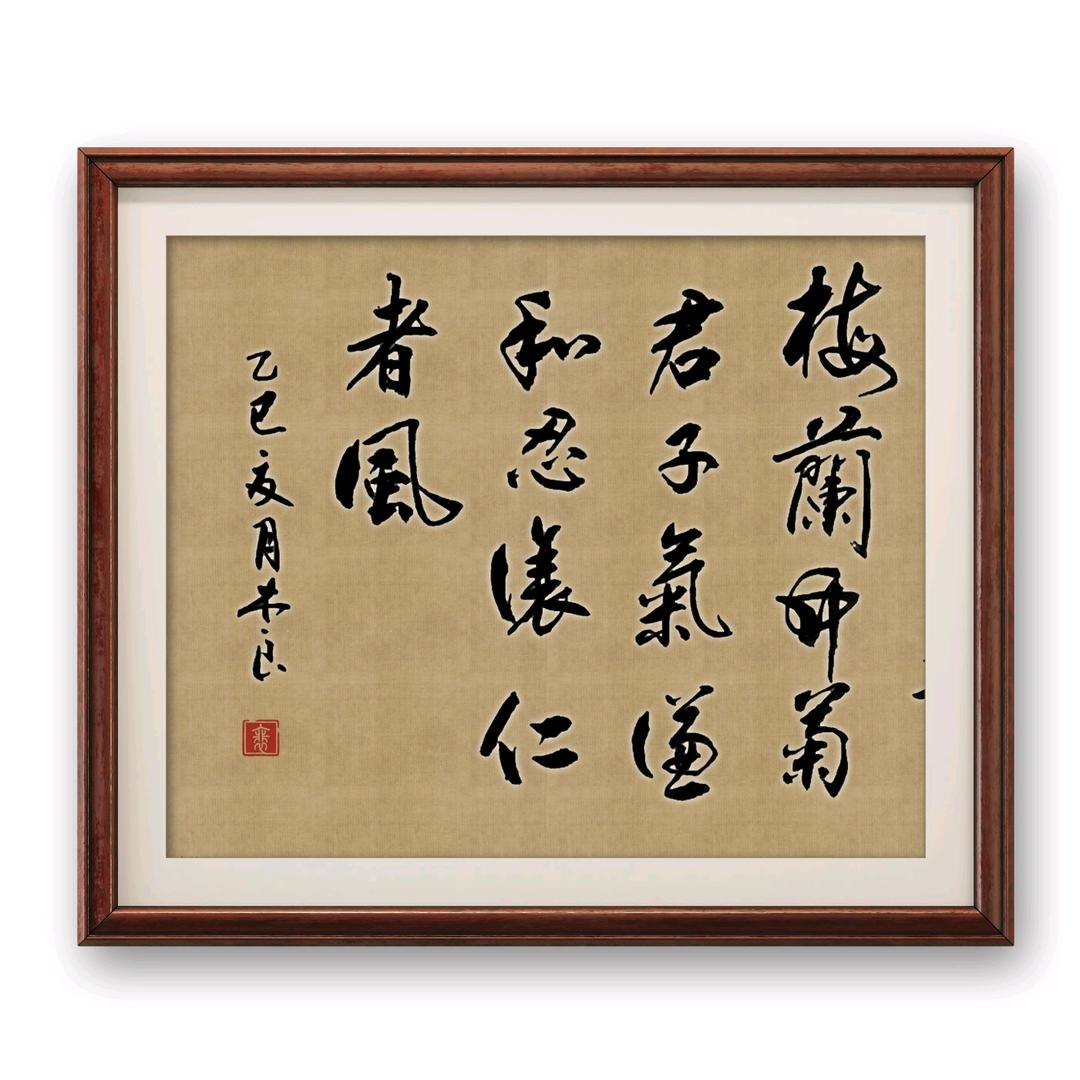 梅蘭竹菊
君子氣謙
和忍讓仁
者風
乙巳亥月木良